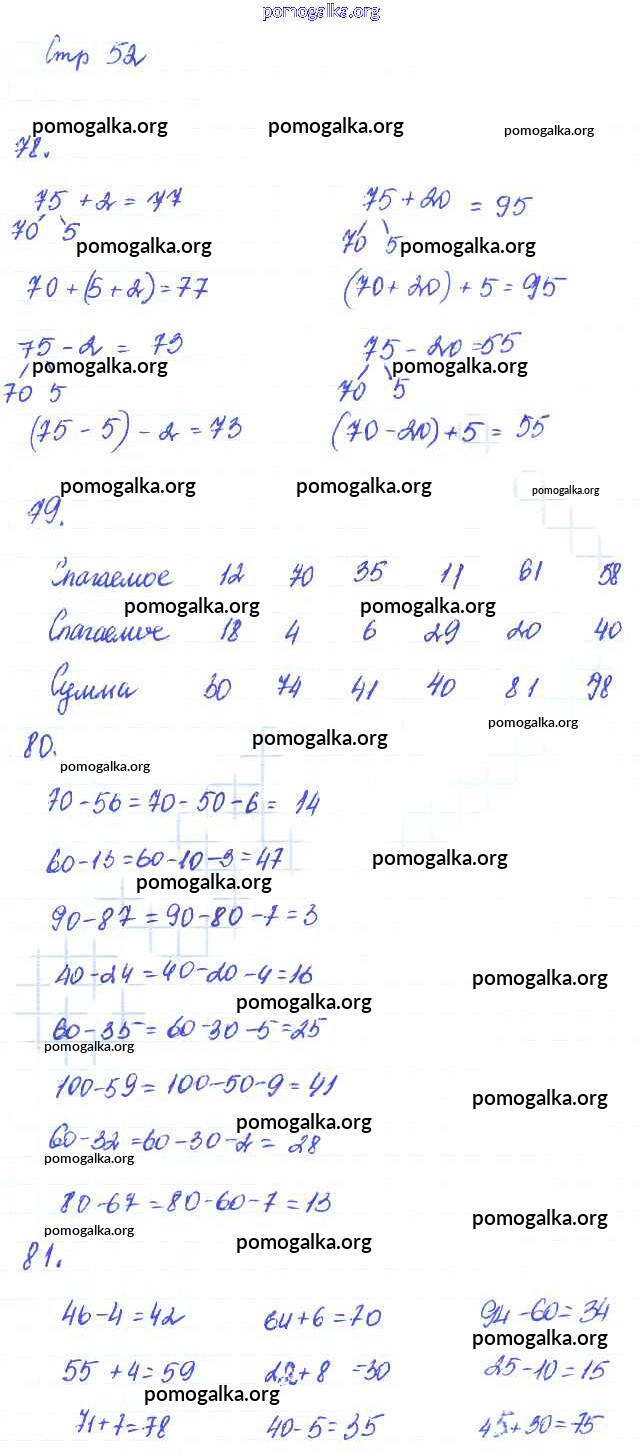 pomogalka.org
Стр 52
pomogalka.org pomogalka.org pomogalka.org
78.
75 + 2 = 77 75 + 20 = 95
70 5 70 5
pomogalka.org pomogalka.org
70 + (5 + 2) = 77 (70 + 20) + 5 = 95
75 - 2 = 73 75 - 20 = 55
pomogalka.org pomogalka.org
70 5 70 5
(75 - 5) - 2 = 73 (70 - 20) + 5 = 55
pomogalka.org pomogalka.org pomogalka.org
79.
Слагаемое 12 70 35 11 61 58
pomogalka.org pomogalka.org
Слагаемое 18 4 6 29 20 40
Сумма 30 74 41 40 81 98
pomogalka.org
80. pomogalka.org
pomogalka.org
70 - 56 = 70 - 50 - 6 = 14
60 - 13 = 60 - 10 - 3 = 47 pomogalka.org
pomogalka.org
90 - 87 = 90 - 80 - 7 = 3
40 - 24 = 40 - 20 - 4 = 16 pomogalka.org
pomogalka.org
60 - 35 = 60 - 30 - 5 = 25
pomogalka.org
100 - 59 = 100 - 50 - 9 = 41 pomogalka.org
pomogalka.org
60 - 32 = 60 - 30 - 2 = 28
pomogalka.org
80 - 67 = 80 - 60 - 7 = 13 pomogalka.org
pomogalka.org pomogalka.org
81.
46 - 4 = 42 64 + 6 = 70 94 - 60 = 34
pomogalka.org
55 + 4 = 59 22 + 8 = 30 25 - 10 = 15
pomogalka.org
71 + 7 = 78 40 - 5 = 35 45 + 30 = 75